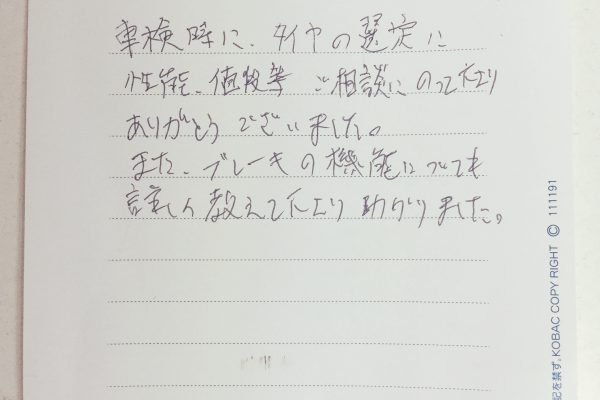 車検時に、タイヤの選定に
性能、値段等 ご相談にのって下さり
ありがとうございました。
また、ブレーキの機能についても
詳しく教えて下さり助かりました。
記を禁ず。KOBAC COPY RIGHT © 111191